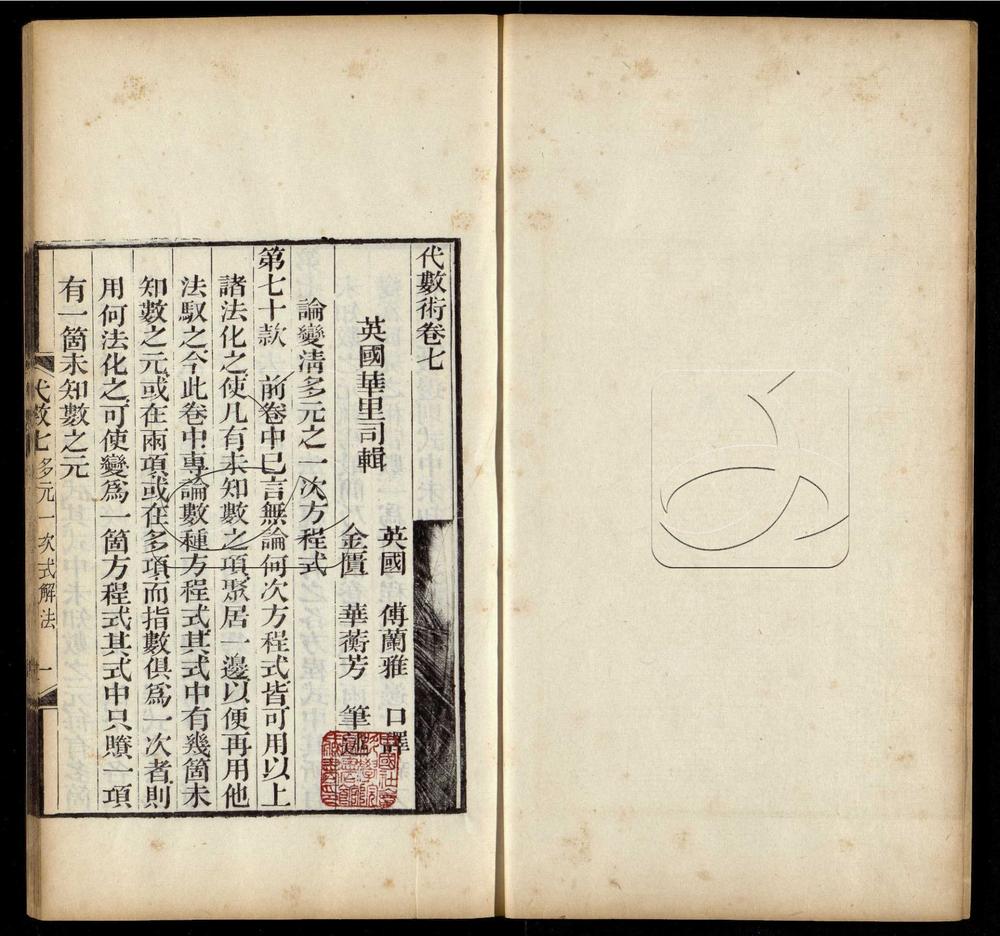 代數術卷七
英國華里司輯
英國　傅蘭雅　口譯
金匱　華蘅芳　筆述
論變清多元之一次方程式
第七十款　前卷中已言無論何次方程式皆可用以上
諸法化之使凡有未知數之項聚居一邊以便再用他
法馭之今此卷中專論數種方程式其式中有幾箇未
知數之元或在兩項或在多項而指數俱爲一次者則
用何法化之可使變爲一箇方程式其式中只賸一項
有一箇未知數之元
代數七　多元一次式解法　一